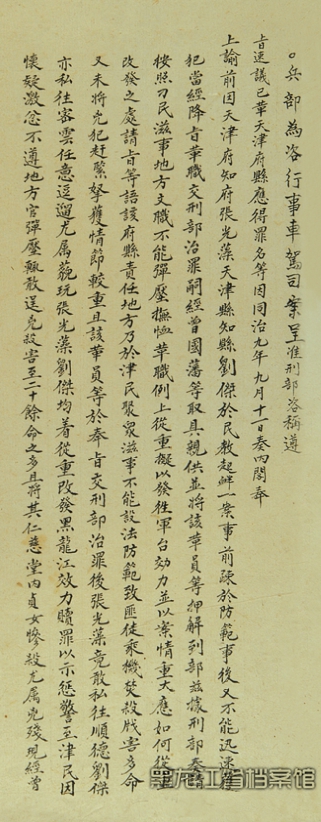 兵部為咨行事車駕司案呈准刑部咨稱遵
旨速議已革天津府縣應得罪名等因同治九年九月十一日奏內閣奉
上諭前因天津府知府張光藻天津縣知縣劉傑於民教起衅一案事前疎於防範事後又不能迅速獲
犯當經降旨革職交刑部治罪嗣經曾國藩等取具親供並將該革員等押解到部茲據刑部奏請
按照刁民滋事地方文職不能彈壓撫恤革職例上從重擬以發往軍台効力並以案情重大應如何從重
改發之處請旨等語該府縣責任地方乃於津民聚眾滋事不能設法防範致匪徒乘機焚殺戕害多命
又未將兇犯趕緊拏獲情節較重且該革員等於奉旨交刑部治罪後張光藻竟敢私往順德劉傑
亦私往密雲任意逗遛尤属藐玩張光藻劉傑均著從重改發黑龍江效力贖罪以示懲警至津民因
懷疑激忿不遵地方官彈壓輒敢逞兇殺害至二十餘命之多且將其仁慈堂內貞女慘殺尤属兇殘現經曾
黑龙江省档案馆